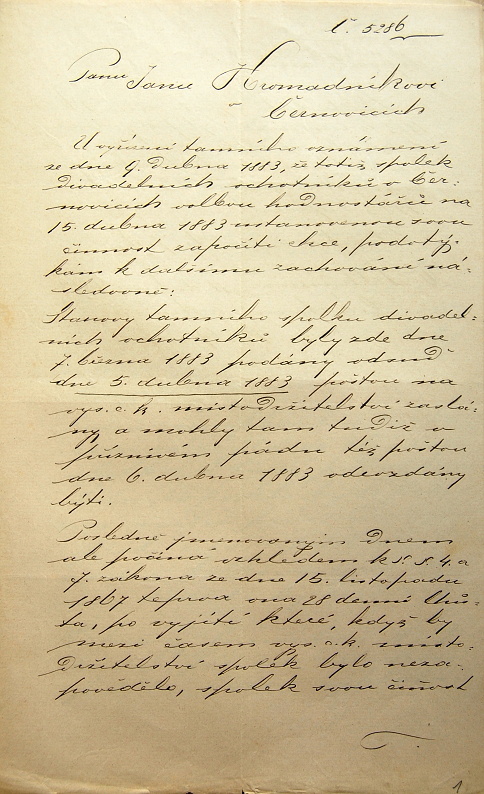 Č. 5286
Panu Janu Hromadníkovi
v
Černovicích
U vyřízení tamního oznámení
ze dne 9. dubna 1883, že totiž spolek
divadelních ochotníků v Čer-
novicích volbou hodnostářů na
15. dubna 1883 ustanovenou svou
činnost započíti chce, podotý-
kám k dalšímu zachování ná-
sledovně:
Stanovy tamního spolku divadel-
ních ochotníků byly zde dne
7. března 1883 podány odsud
dne 5. dubna 1883 poštou na
vys. c. k. místodržitelství zaslá-
ny, a mohly tam tudíž v
příznivém pádu též poštou
dne 6. dubna 1883 odevzdány
býti.
Posledně jmenovaným dnem
ale počíná vzhledem k §. §. 4. a
7. zákona ze dne 15. listopadu
1867 teprva ona 28 denní lhů-
ta, po vyjití které, když by
mezi časem vys. c. k. místo-
držitelství spolek bylo neza-
povědělo, spolek svou činnost
1